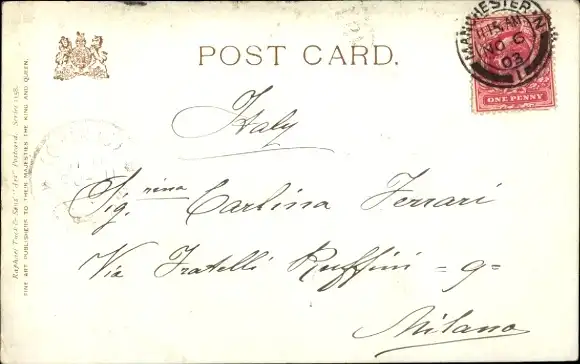 POST CARD.
MANCHESTER
11.15 AM
NO 6
03
1
ONE PENNY
Italy
Sig.rina Carlina Ferrari
Via Fratelli Ruffini = 9 =
Milano
Raphael Tuck & Sons' "Art" Postcard, Series
FINE ART PUBLISHERS TO THEIR MAJESTIES THE KING AND QUEEN.